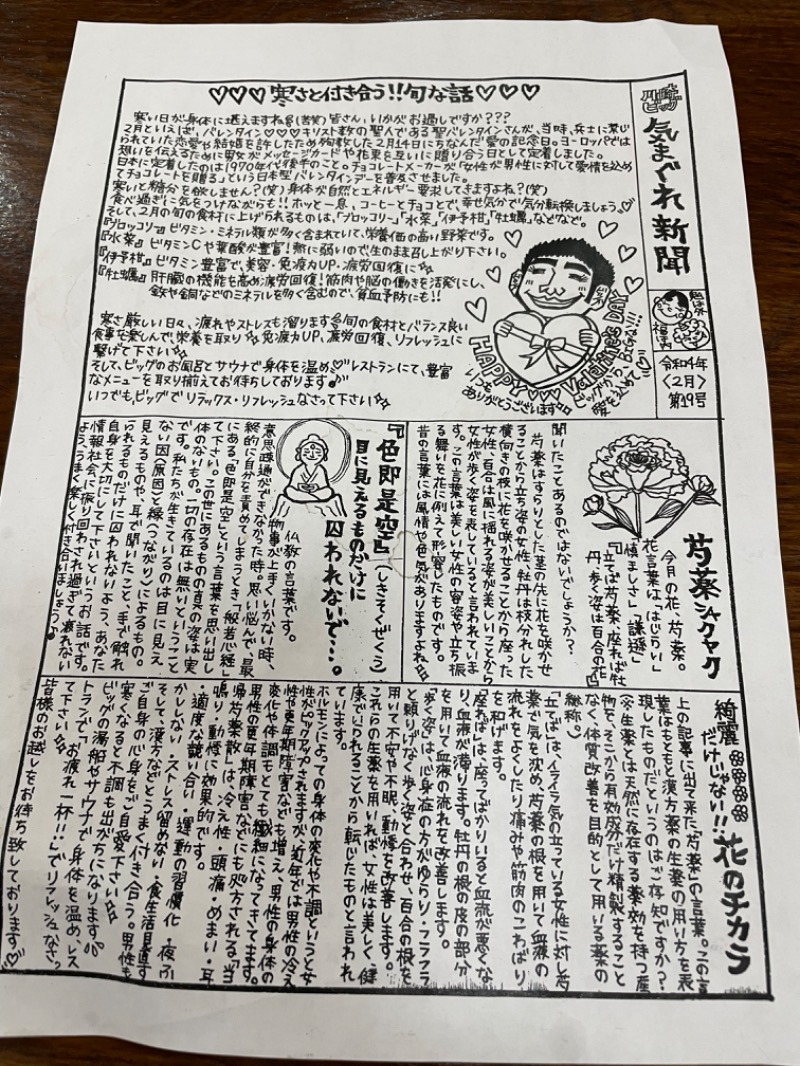 川崎ビッグ
気まぐれ新聞
鬼は外
福は内
令和4年
〈2月〉
第19号
♡♡♡寒さと付き合う!!旬な話♡♡♡
寒い日が身体に堪えますね(苦笑)皆さん、いかがお過しですか???
2月といえば、バレンタイン♡♡♡キリスト教の聖人である聖バレンタインさんが、当時、兵士に禁じ
られていた恋愛や結婚を許したため殉教した2月14日にちなんだ愛の記念日。ヨーロッパでは
想いを伝えるために男女がメッセージカードや花束を互いに贈り合う日として定着しました。
日本に定着したのは1970年代後半のこと。チョコレートメーカーが「女性が男性に対して愛情を込め
てチョコレートを贈る」という日本型バレンタインデーを普及させました。
寒いと糖分を欲しません?(笑)身体が自然とエネルギー要求してきますよね?(笑)
食べ過ぎに気をつけながらも!!ホッと一息、コーヒーとチョコとで、幸せ気分で気分転換しましょう♡
そして、2月の旬の食材に上げられるものは、「ブロッコリー」「水菜」「伊予柑」「牡蠣」などなど。
『ブロッコリー』ビタミン・ミネラル類が多く含まれていて、栄養価の高い野菜です。
『水菜』ビタミンCや葉酸が豊富!熱に弱いので生のまま召し上がり下さい。
『伊予柑』ビタミン豊富で、美容・免疫力UP・疲労回復に☆
『牡蠣』肝臓の機能を高め疲労回復!筋肉や脳の働きを活発にし、
鉄や銅などのミネラルを多く含むので、貧血予防にも!!
寒さ厳しい日々、疲れやストレスも溜ります旬の食材とバランス良い
食事を楽しんで、栄養を取り☆免疫力UP、疲労回復、リフレッシュに
繋げて下さい☆
そして、ビッグのお風呂とサウナで身体を温め♡レストランにて、豊富
なメニューを取り揃えてお待ちしております♪
いつでも、ビッグでリラックス・リフレッシュなさって下さい☆
HAPPY♡♡♡Valentine's DAY
いつも
ありがとうございます
ビッグから
愛を込めて
芍薬シャクヤク
今月の花、芍薬。
花言葉は、「はじらい」
「慎ましさ」「謙遜」
『立てば芍薬、座れば牡
丹、歩く姿は百合の花』
聞いたことあるのではないでしょうか?
芍薬はすらりとした茎の先に花を咲かせ
ることから立ち姿の女性、牡丹は枝分れした
横向きの枝に花を咲かせることから座った
女性、百合は風に揺れる姿が美しいことから
女性が歩く姿を表していると言われていま
す。この言葉は美しい女性の容姿や立ち振
る舞いを花に例えて形容したものです。
昔の言葉には風情や色気がありますよね
『色即是空』(しきそくぜくう)
目に見えるものだけに
囚われないで…。
仏教の言葉です。
物事が上手くいかない時、
意思疎通ができなかった時。思い悩んで、最
終的に自分を責めてしまうとき「般若心経」
にある「色即是空」という言葉を思い出し
て下さい。この世にあるものの真の姿は実
体のないもの。一切の存在は無いということ
です。私たちが生きているのは目に見え
ない因(原因)と縁(つながり)によるもの。
見えるものや、耳で聞いたこと、手で触れ
られるものだけに囚われないよう、あなた
自身を大切にして下さいというお話です。
情報社会に振り回され過ぎて疲れない
よう、うまく楽しく付き合いましょう♪
綺麗だけじゃない!!花のチカラ
上の記事に出て来た「芍薬」の言葉。この言
葉はもともと漢方薬の生薬の用い方を表
現したものだというのはご存知ですか?
(※生薬とは天然に存在する薬効を持つ産
物を、そこから有効成分だけ精製すること
なく、体質改善を目的として用いる薬の
総称。)
「立てば」は、イライラ気の立っている女性に対し芍
薬で気を沈め、芍薬の根を用いて血液の
流れをよくしたり痛みや筋肉のこわばり
を和げます。
「座れば」は、座ってばかりいると血流が悪くな
り、血液が滞ります。牡丹の根の皮の部分
を用いて血液の流れを改善します。
「歩く姿」は、心身症の方がゆらり・フラフラ
と頼りげなく歩く姿と合わせ、百合の根を
用いて不安や不眠、動悸を改善します。
これらの生薬を用いれば、女性は美しく、健
康でいられることから転じたものと言われ
ています。
ホルモンによっての身体の変化や不調というと女
性がピックアップされますが、近年では男性の冷え
性や更年期障害なども増え、男性の身体の
変化や体調もとても繊細になってきてます。
男性の更年期障害などにも処方される「当
帰芍薬散」は、冷え性・頭痛・めまい・耳
鳴り・動悸に効果的です。
・適度な競い合い・運動の習慣化・夜ふ
かししない・ストレス留めない・食生活見直す
そして、漢方などとうまく付き合う。男性も
ご自身の心身をご自愛下さい☆
寒くなると不調も出がちになります
ビッグの湯船やサウナで身体を温め、レス
トランで「お疲れ一杯!!」でリフレッシュなさっ
て下さい☆
皆様のお越しをお待ち致しております♡